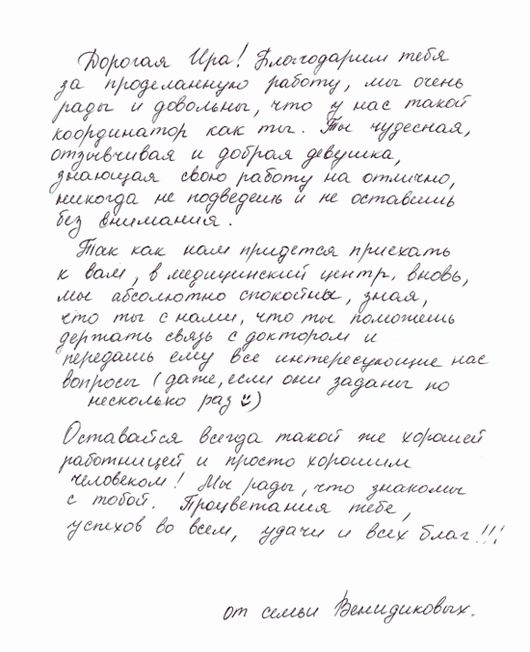 Дорогая Ира! Благодарим тебя
за проделанную работу, мы очень
рады и довольны, что у нас такой
координатор как ты. Ты чудесная,
отзывчивая и добрая девушка,
знающая свою работу на отлично,
никогда не подведешь и не оставишь
без внимания.
Так как нам придется приехать
к вам, в медицинский центр, вновь,
мы абсолютно спокойны, зная,
что ты с нами, что ты поможешь
держать связь с доктором и
передашь ему все интересующие нас
вопросы (даже, если они заданы по
несколько раз )
Оставайся всегда такой же хорошей
работницей и просто хорошим
человеком! Мы рады, что знакомы
с тобой. Процветания тебе,
успехов во всем, удачи и всех благ!!!
от семьи Венидиковых.